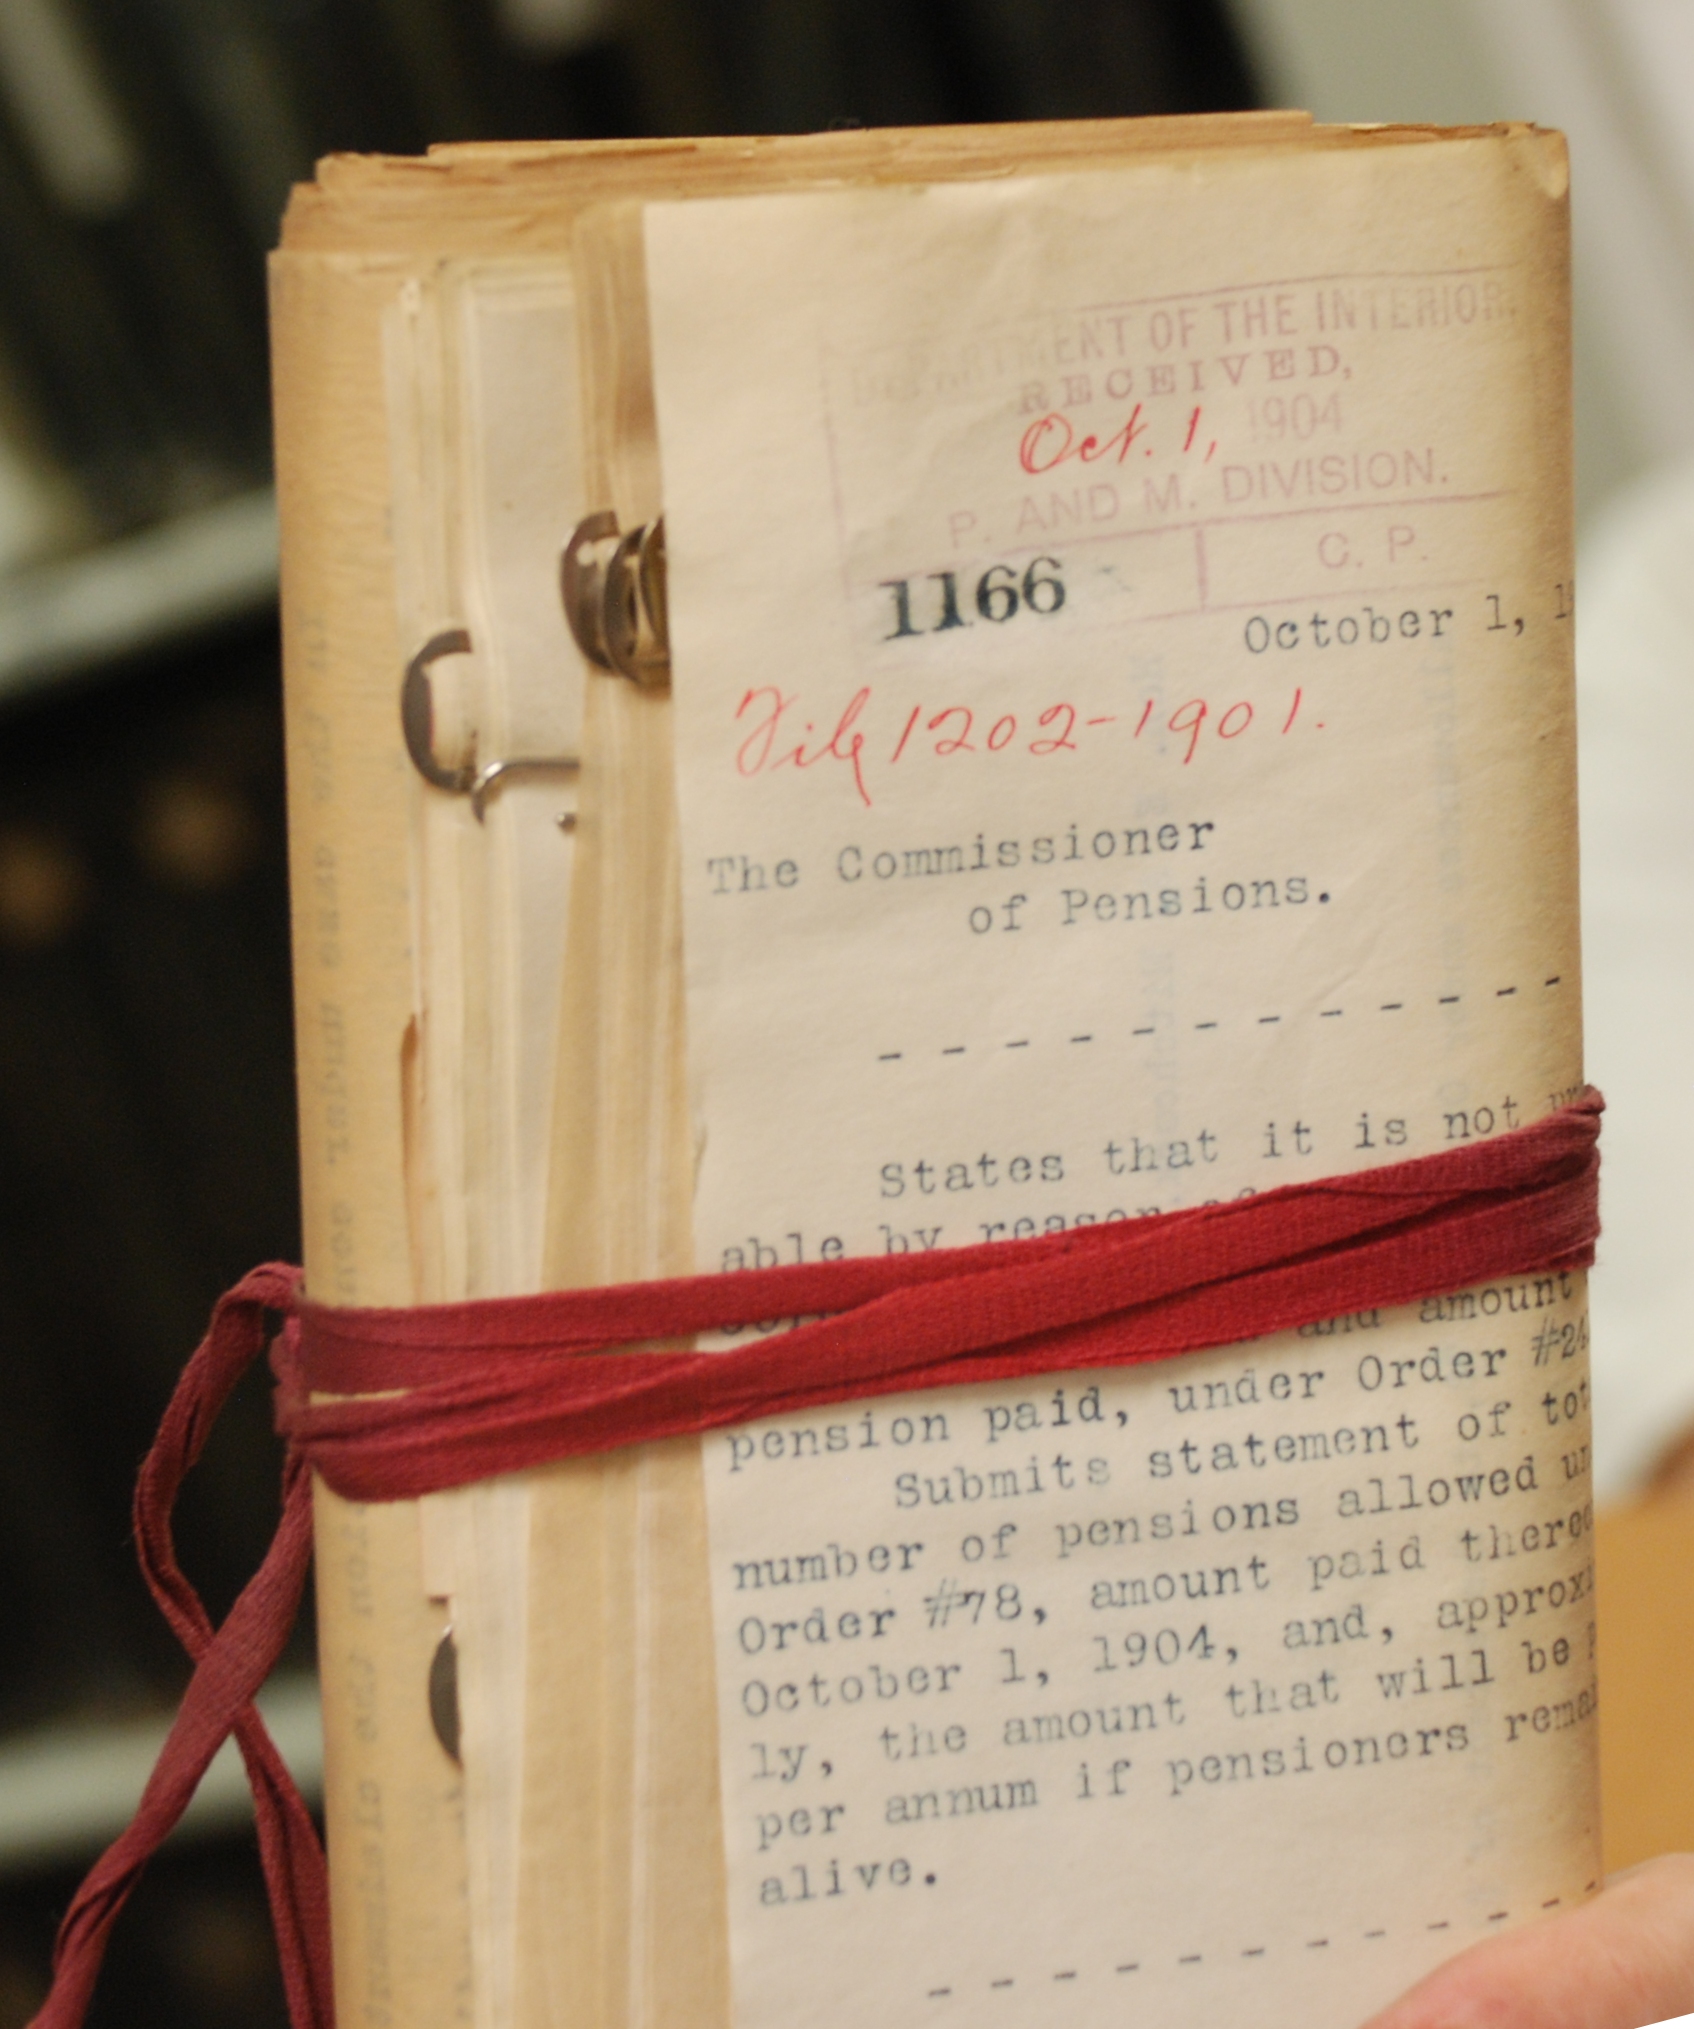 DEPARTMENT OF THE INTERIOR.
RECEIVED,
Oct. 1, 1904
P. AND M. DIVISION.
1166
C. P.
October 1, 1
File 1202-1901.
The Commissioner
of Pensions.
- - - - - - - - - - - -
States that it is not
able by reason of
and amount
pension paid, under Order #24
Submits statement of tot
number of pensions allowed un
Order #78, amount paid thereo
October 1, 1904, and, approxi
ly, the amount that will be p
per annum if pensioners remai
alive.
- - - - - - - - - - -